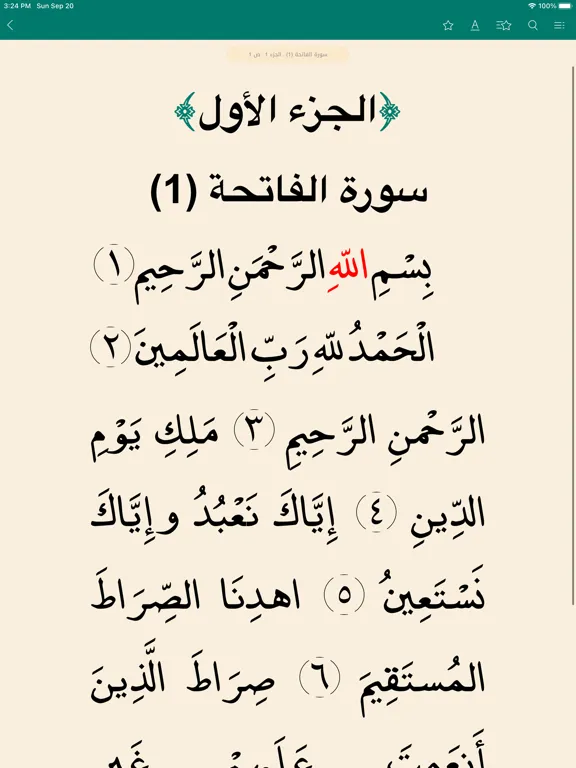 3:24 PM Sun Sep 20
100%
سورة الفاتحة (1) . الجزء 1 . ص 1
﴿الجزء الأول﴾
سورة الفاتحة (1)
بِسْمِ اللّهِ الرَّحْمَنِ الرَّحِيمِ ﴿١﴾
الْحَمْدُ للّهِ رَبِّ الْعَالَمِينَ ﴿٢﴾
الرَّحْمنِ الرَّحِيمِ ﴿٣﴾ مَلِكِ يَوْمِ
الدِّينِ ﴿٤﴾ إِيَّاكَ نَعْبُدُ وإِيَّاكَ
نَسْتَعِينُ ﴿٥﴾ اهدِنَا الصِّرَاطَ
المُستَقِيمَ ﴿٦﴾ صِرَاطَ الَّذِينَ
أَنعَمتَ عَلَيهِمْ غَيرِ